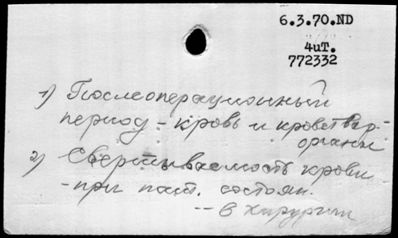 6.3.70.ND
4uT.
772332
1) Послеоперационный
период - кровь и кроветвор-
органы
2) Свертываемость крови
- при пат. состоян.
-- в хирургии